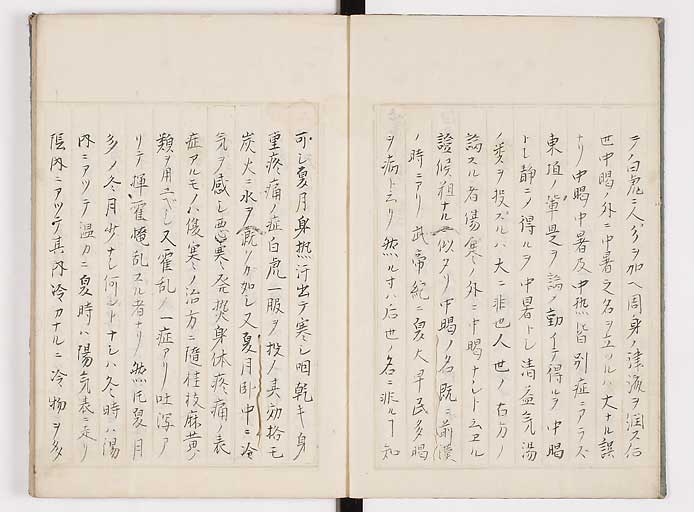 テノ白虎ニ人参ヲ加ヘ周身ノ津液ヲ潤ス后
世中暍ノ外ニ中暑之名ヲ立ツルハ大ナル誤
ナリ中暍中暑及中熱皆別症ニアラズ
東垣ノ輩是ヲ論ノ動イテ得ルヲ中暍
トシ静ニノ得ルヲ中暑トシ清益気湯
ノ類ヲ投ズルハ大ニ非也人世ノ古方ノ
論スル者傷寒ノ外ニ中暍ナントト云ヱル
證候粗ナル似タリ中暍ノ名既ニ前漢
ノ時ニアリ武帝紀ニ夏大旱民多暍
ヲ病ト云リ然ル寸ハ后世ノ名ニ非ルヿ知
可シ夏月身熱汗出テ寒シ咽乾キ身
重疼痛ノ症白虎一服ヲ投ノ其効恰モ
炭火ニ水ヲ漑クカ如シ又夏月卧中ニ冷
気ヲ感シ悪寒シ発熱身体疼痛ノ表
症アルモノハ傷寒ノ治方ニ随桂枝麻黄ノ
類ヲ用ユベシ又霍乱ノ一症アリ吐瀉ア
リテ揮霍撩乱スル者ナリ然𪜈夏月
多ノ冬月少ナシ何ントナレハ冬ノ時ハ陽
内ニアツテ温カニ夏時ハ陽気表ニ走リ
陰内ニアツテ其内冷カナルニ冷物ヲ多